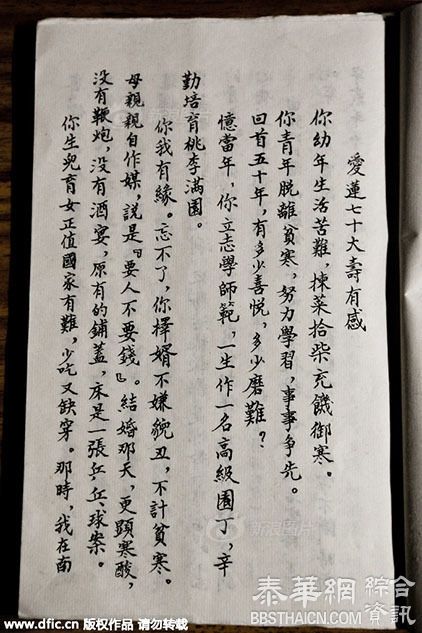 愛蓮七十大壽有感
你幼年生活苦難,揀菜拾柴充饑御寒。
你青年脱離貧寒,努力學習,事事争先。
回首五十年,有多少喜悦,多少磨難?
憶當年,你立志學師範,一生作一名高級園丁,辛
勤培育桃李满園。
你我有緣。忘不了,你擇婿不嫌貌丑,不計貧寒。
母親親自作媒,説是『要人不要錢』。結婚那天,更顕寒酸,
没有鞭炮,没有酒宴,原有的鋪蓋,床是一張乒乓球案。
你生兒育女正值國家有難,少吃又缺穿。那時,我在南
泰華網 綜合資訊
BBSTHAICN.COM
www.dfic.cn 版权作品 请勿转载